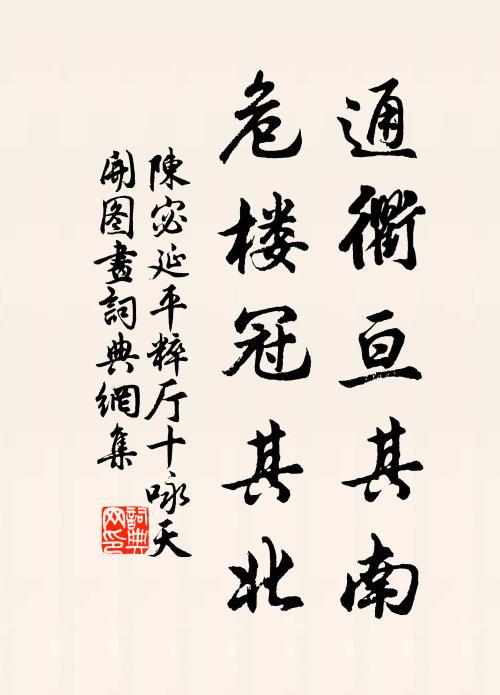 通衢亘其南
危楼冠其北
陳宓延平粹厅十咏天
開图畫詞典網集
詞典
网印